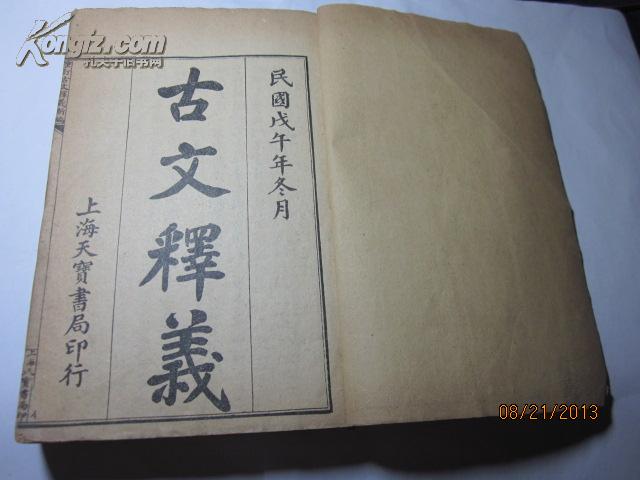 Kongfz.com
孔夫子旧书网
民國戊午年冬月
古文釋義
上海天寶書局印行
08/21/2013